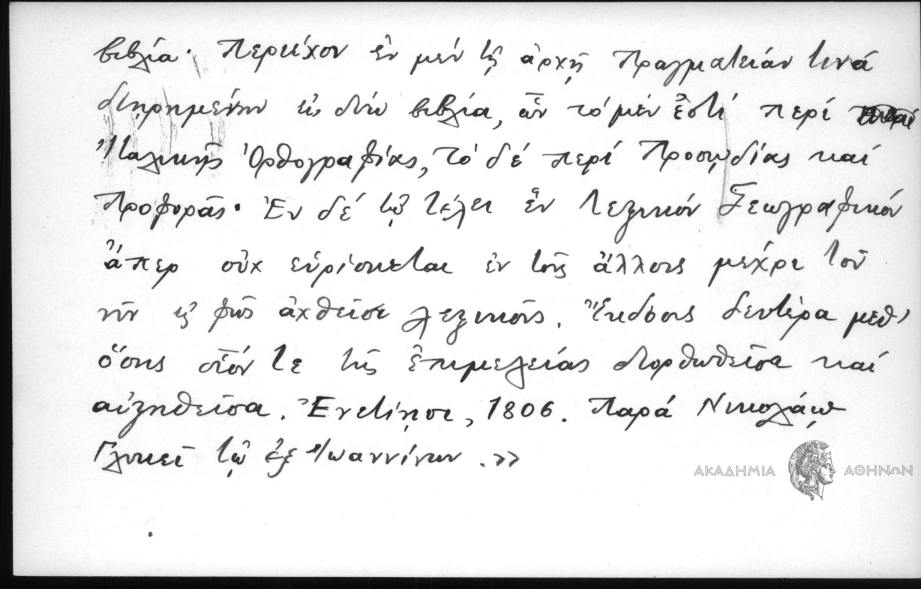 βιβλία· Περιέχον ἐν μέν τῇ ἀρχῇ Πραγματείαν τινά
διῃρημένην εἰς δύο βιβλία, ὧν τό μέν ἐστί περί
Ἰταλικῆς Ὀρθογραφίας, τό δέ περί Προσῳδίας καί
Προφορᾶς. Ἐν δέ τῷ τέλει ἕν Λεξικόν Γεωγραφικόν
ἅπερ οὐχ εὑρίσκεται ἐν τοῖς ἄλλοις μέχρι τοῦ
νῦν εἰς φῶς ἀχθεῖσι λεξικοῖς. Ἔκδοσις δευτέρα μεθ'
ὅσης οἷόν τε τῆς ἐπιμελείας διορθωθεῖσα καί
αὐξηθεῖσα. Ἐνετίῃσι, 1806. Παρά Νικολάῳ
Γλυκεῖ τῷ ἐξ Ἰωαννίνων.»
ΑΚΑΔΗΜΙΑ ΑΘΗΝΩΝ